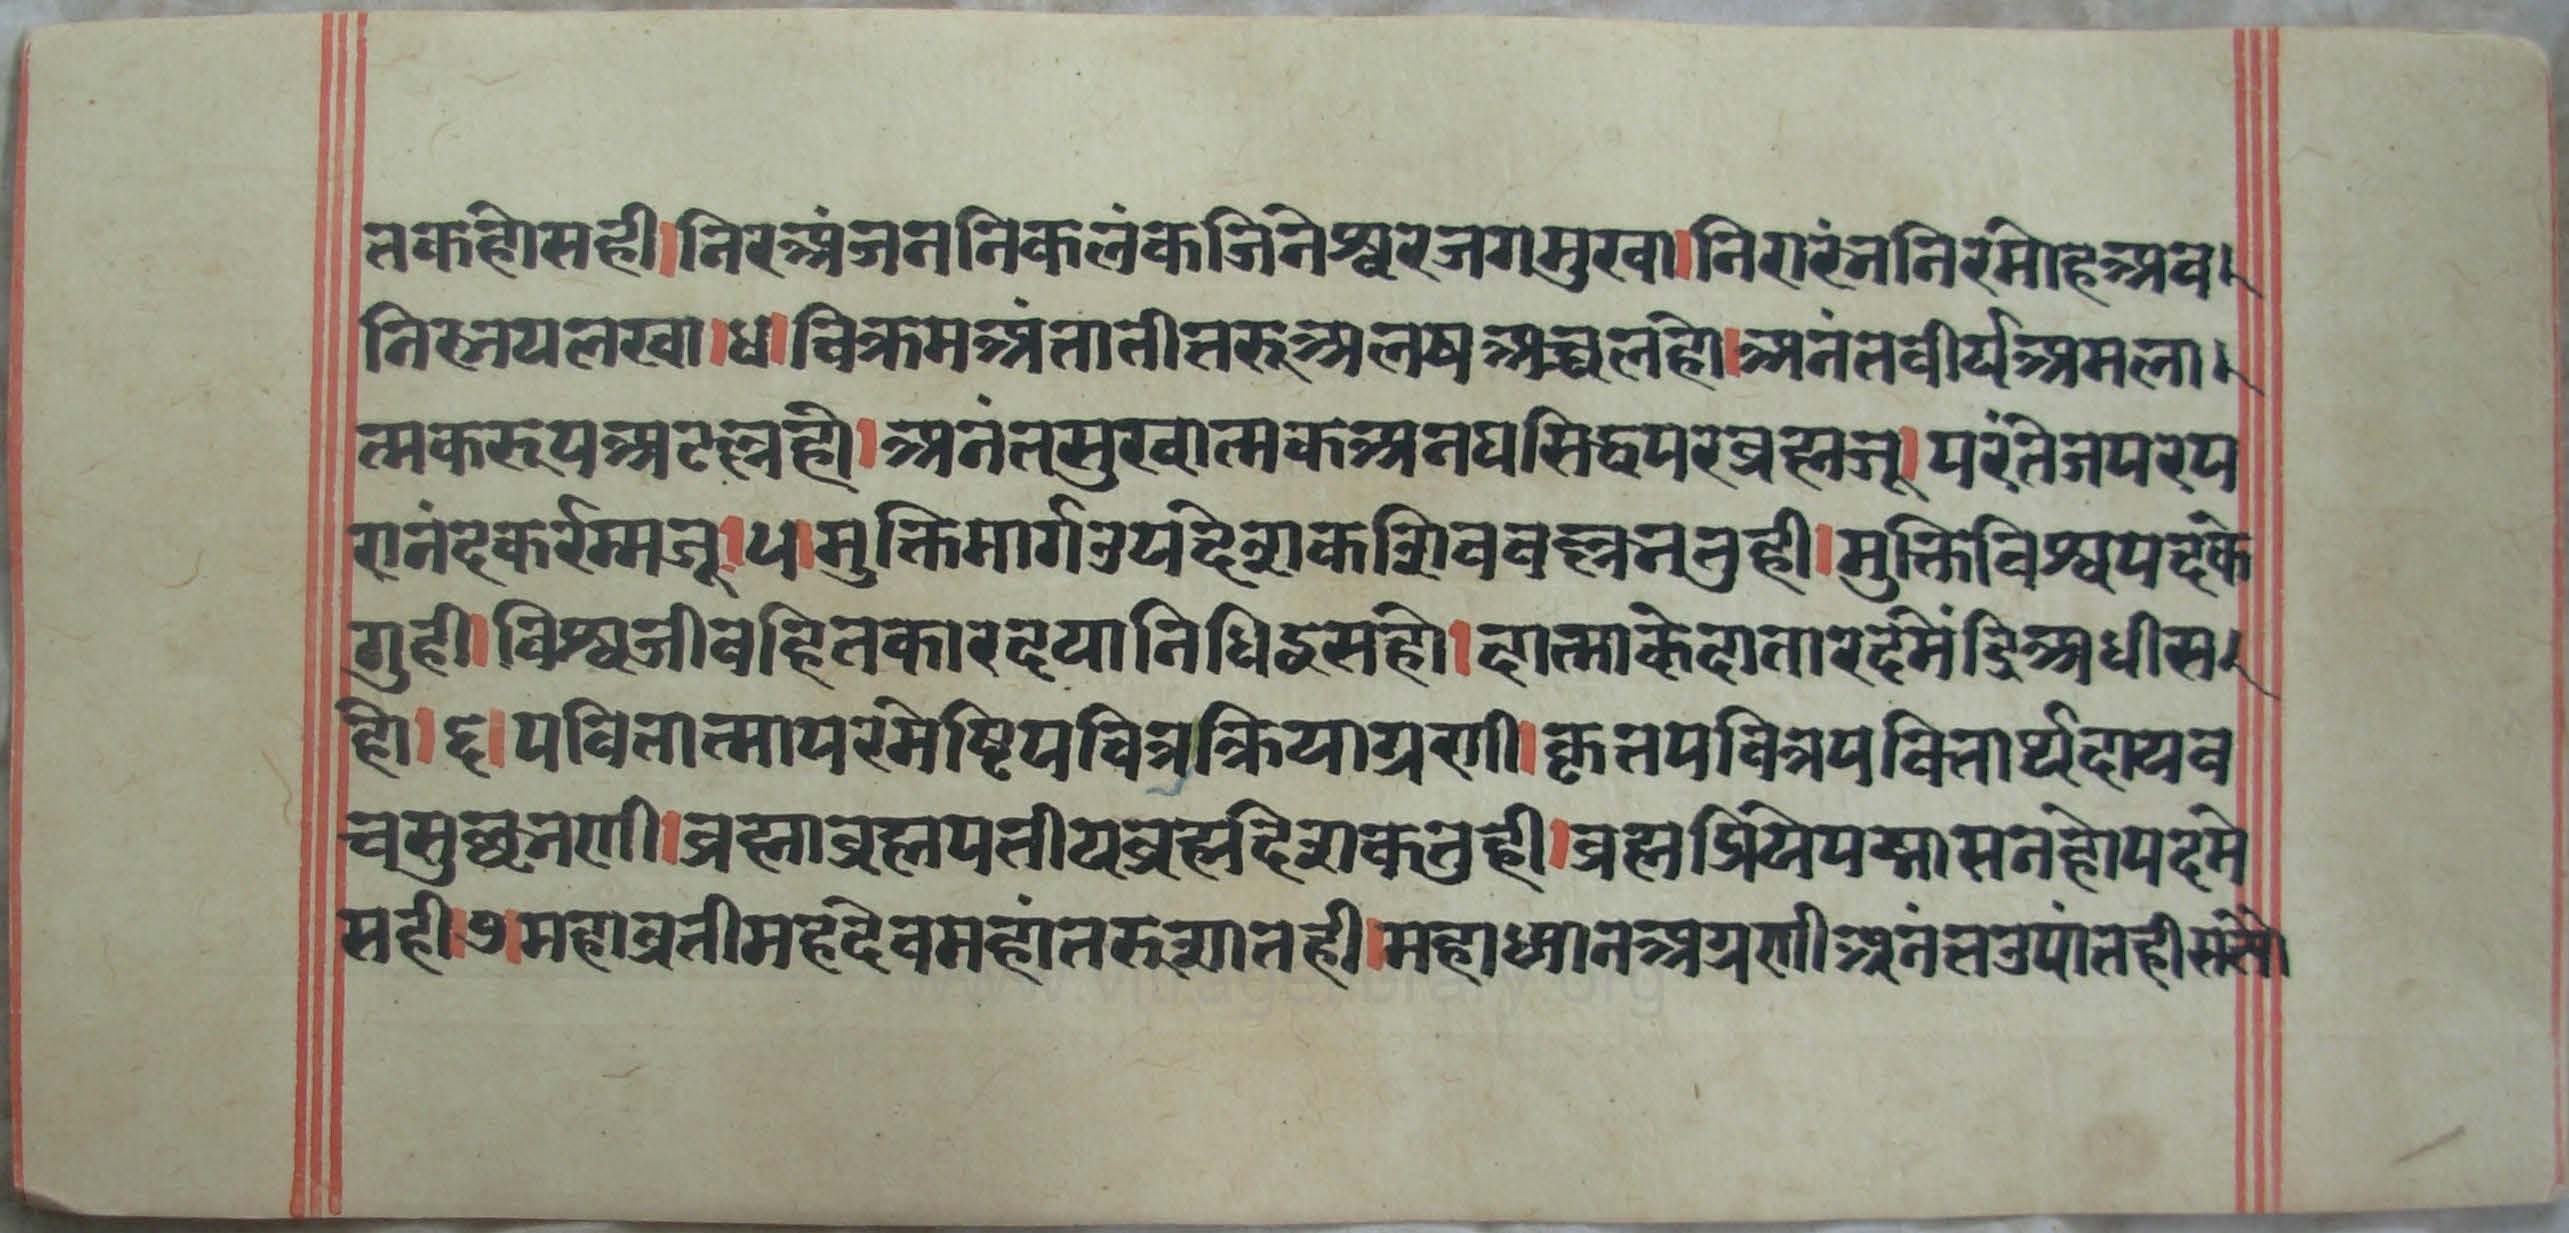 तकहोसही।निरअंजननिकलंकजिनेश्वरजगमुखा।निरारंननिरमोहअव
निस्नयलखा।४।विक्रमअंतातीतरूअलषअच्चलहो।अनंतवीर्यअमला
त्मकरूपअटह्नहो।अनंतसुखात्मकअनघसिद्धपरब्रह्मजू।परंतेजपरप
रानंदकर्रम्मजू।५।मुक्तिमार्गउपदेशकशिववह्ननतुही।मुक्तिविश्वपदके
गुही।विश्वजीवहितकारदयानिधिइसहो।दात्माकेदातारदमेंद्रिअधीस
हो।६।पवितात्मापरमेष्टिपवित्रक्रियाग्रणी।कृतपवित्रपवितार्थदायव
चमुछनणी।ब्रह्माब्रह्मपतीयब्रह्मदेशकतुही।ब्रह्मप्रियेपद्मासनहोपदमे
सही।७।महाव्रतीमहदेवमहांतरुशातही।महाध्यानअग्रणीअनंतउपांतही
www.vitragelibrary.org